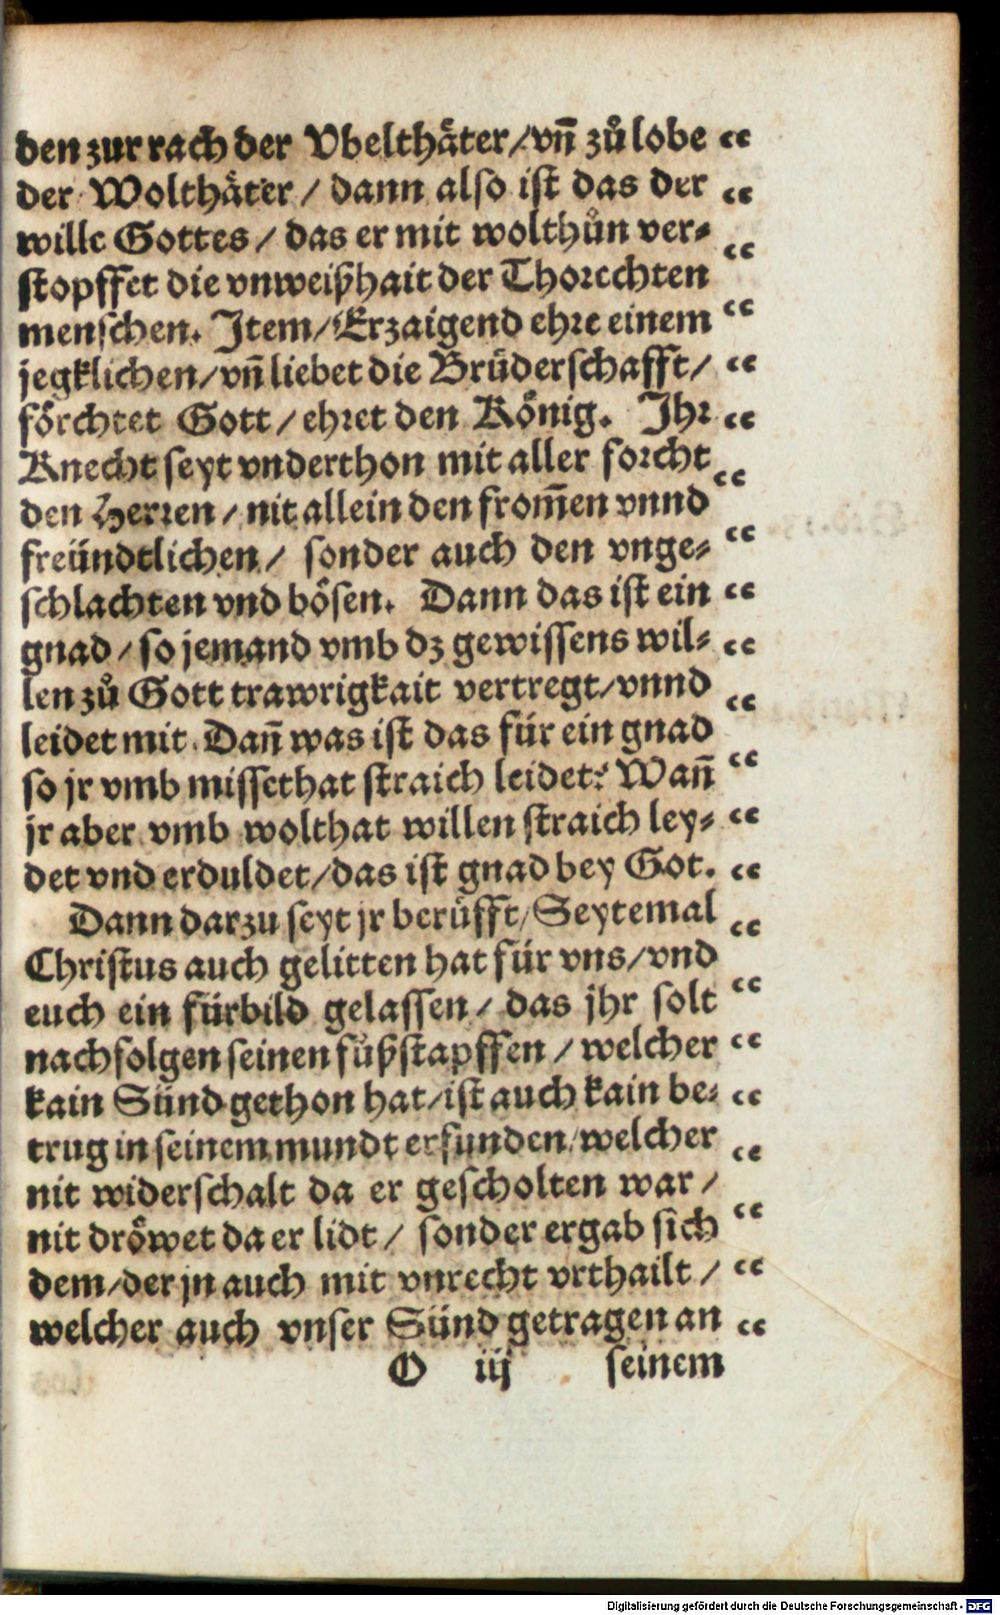 den zur rach der Vbelthäter/vñ zů lobe “
der Wolthäter / dann also ist das der “
wille Gottes / das er mit wolthůn ver⸗ “
stopffet die vnweißhait der Thorechten “
menschen. Item/Erzaigend ehre einem “
jegklichen/vñ liebet die Brůderschafft/ “
förchtet Gott / ehret den König. Ihr “
Knecht seyt vnderthon mit aller forcht “
den Herren / nit allein den from̃en vnnd
freündtlichen / sonder auch den vnge⸗ “
schlachten vnd bösen. Dann das ist ein “
gnad / so jemand vmb dz gewissens wil⸗ “
len zů Gott trawrigkait vertregt/vnnd “
leidet mit. Dañ was ist das für ein gnad
so jr vmb missethat straich leidet? Wañ “
jr aber vmb wolthat willen straich ley⸗ “
det vnd erduldet/das ist gnad bey Got. “
Dann darzu seyt jr berůfft/Seytemal “
Christus auch gelitten hat für vns/vnd
euch ein fürbild gelassen / das jhr solt “
nachfolgen seinen fůßstapffen / welcher “
kain Sünd gethon hat/ist auch kain be⸗ “
trug in seinem mundt erfunden/welcher “
nit widerschalt da er gescholten war / “
nit dröwet da er lidt / sonder ergab sich
dem/der jn auch mit vnrecht vrthailt / “
welcher auch vnser Sünd getragen an “
O iij seinem
Digitalisierung gefördert durch die Deutsche Forschungsgemeinschaft - DFG